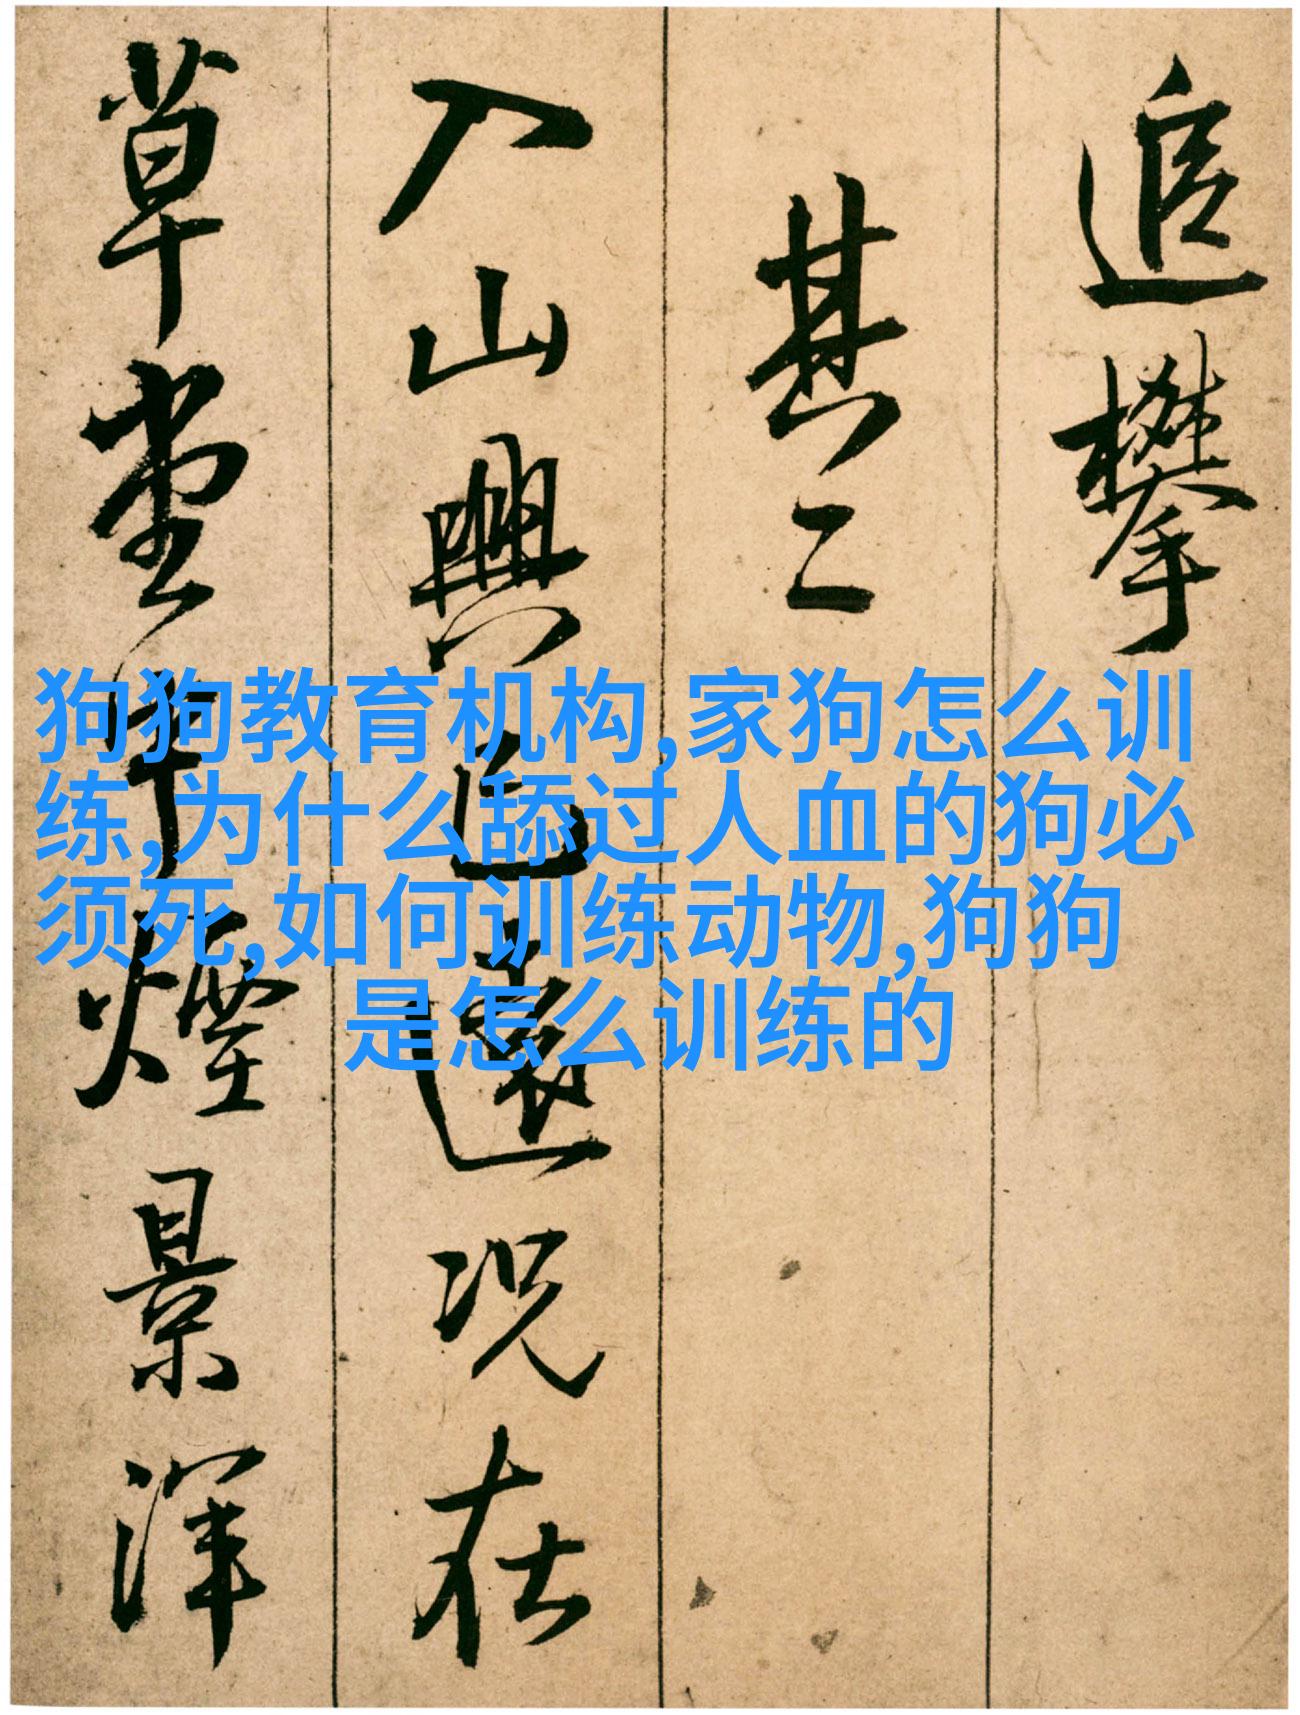 追攀
其二
入山興已遠況在
草堂煙景渾
狗狗教育机构,家狗怎么训
练,为什么舔过人血的狗必
须死,如何训练动物,狗狗
是怎么训练的